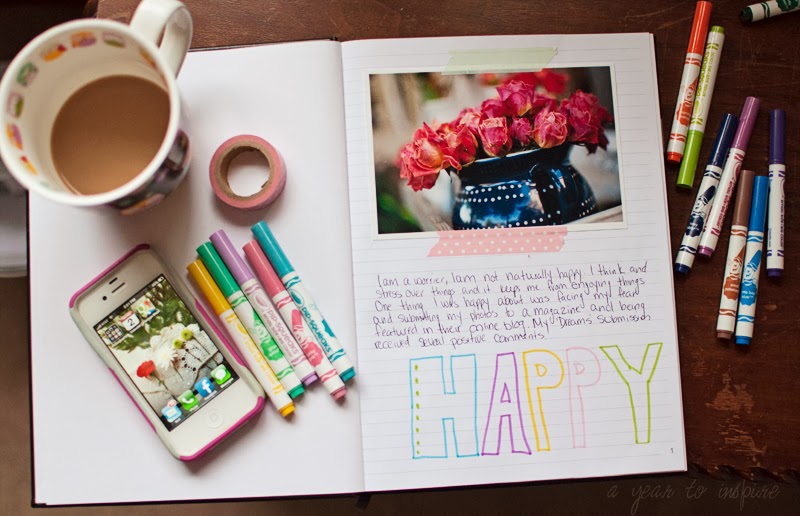 I am a worrier, I am not naturally happy. I think and
stress over things and it keeps me from enjoying things.
One thing I was happy about was facing my fear
and submitting my photos to a magazine and being
featured in their online blog. My Dreams Submission
received several positive comments.
HAPPY
1
a year to inspire